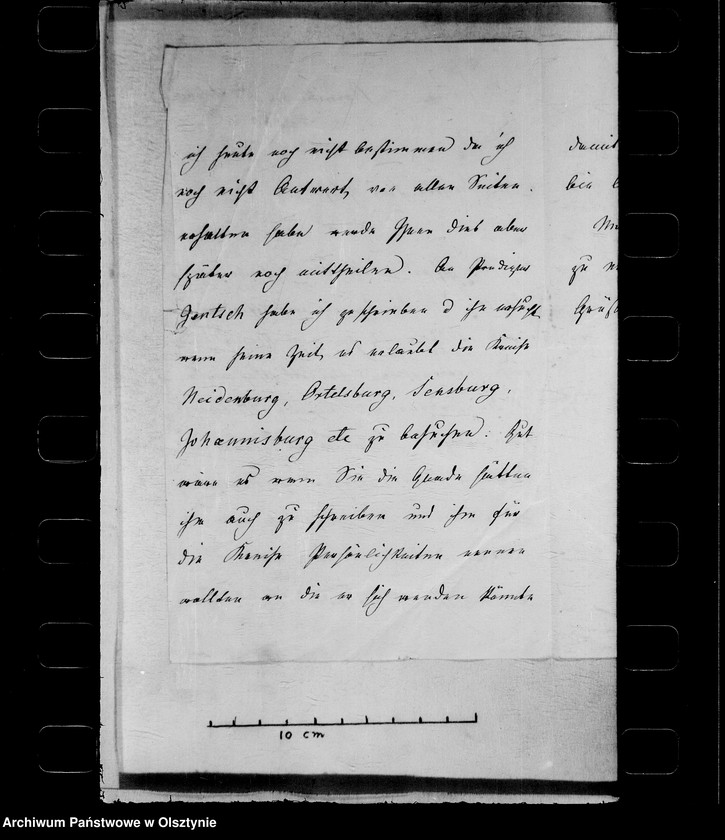 ich heute noch nicht bestimmen da ich
noch nicht Antwort von allen Seiten.
erhalten habe werde Ihnen dies aber
später noch mittheilen. An Prediger
Gentsch habe ich geschrieben u ihn ersucht
wenn seine Zeit es erlaubt die Kreise
Neidenburg, Ortelsburg, Sensburg,
Johannisburg etc zu besuchen. Gut
wäre es wenn Sie die Gnade hätten
ihm auch zu schreiben und ihm für
die Kreise Persönlichkeiten nennen
wollten an die er sich wenden könnte
damit
bin
zu
10 cm
Archiwum Państwowe w Olsztynie